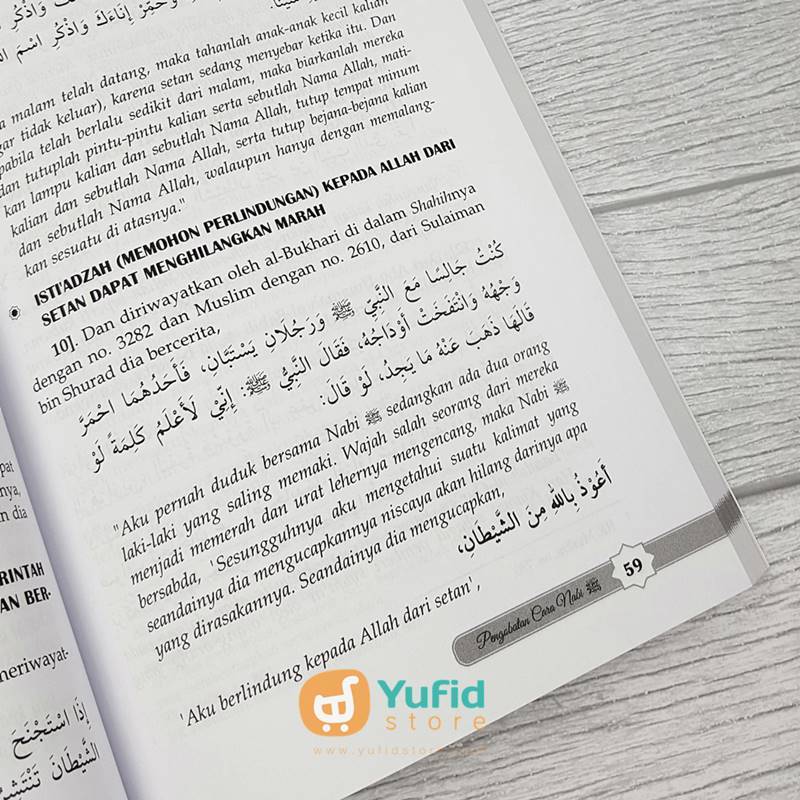 وَخَمِّرْ إِنَاءَكَ وَاذْكُرِ اسْمَ
malam telah datang, maka tahanlah anak-anak kecil kalian
tidak keluar), karena setan sedang menyebar ketika itu. Dan
pabila telah berlalu sedikit dari malam, maka biarkanlah mereka
dan tutuplah pintu-pintu kalian serta sebutlah Nama Allah, mati-
kan lampu kalian dan sebutlah Nama Allah, tutup tempat minum
kalian dan sebutlah Nama Allah, serta tutup bejana-bejana kalian
dan sebutlah Nama Allah, walaupun hanya dengan memalang-
kan sesuatu di atasnya."
ISTI'ADZAH (MEMOHON PERLINDUNGAN) KEPADA ALLAH DARI
SETAN DAPAT MENGHILANGKAN MARAH
10]. Dan diriwayatkan oleh al-Bukhari di dalam Shahihnya
dengan no. 3282 dan Muslim dengan no. 2610, dari Sulaiman
bin Shurad dia bercerita,
كُنْتُ جَالِسًا مَعَ النَّبِيِّ ﷺ وَرَجُلَانِ يَسْتَبَّانِ، فَأَحَدُهُمَا احْمَرَّ
وَجْهُهُ وَانْتَفَخَتْ أَوْدَاجُهُ، فَقَالَ النَّبِيُّ ﷺ: إِنِّيْ لَأَعْلَمُ كَلِمَةً لَوْ
قَالَهَا ذَهَبَ عَنْهُ مَا يَجِدُ، لَوْ قَالَ:
"Aku pernah duduk bersama Nabi ﷺ sedangkan ada dua orang
laki-laki yang saling memaki. Wajah salah seorang dari mereka
menjadi memerah dan urat lehernya mengencang, maka Nabi ﷺ
bersabda, 'Sesungguhnya aku mengetahui suatu kalimat yang
seandainya dia mengucapkannya niscaya akan hilang darinya apa
yang dirasakannya. Seandainya dia mengucapkan,
أَعُوْذُ بِاللهِ مِنَ الشَّيْطَانِ،
'Aku berlindung kepada Allah dari setan',
Pengobatan Cara Nabi ﷺ 59
RINTAH
AN BER-
meriwayat-
إِذَا اسْتَجْنَحَ
الشَّيْطَانَ تَنْتَشِرُ
Yufid
store
www.yufidstore.com